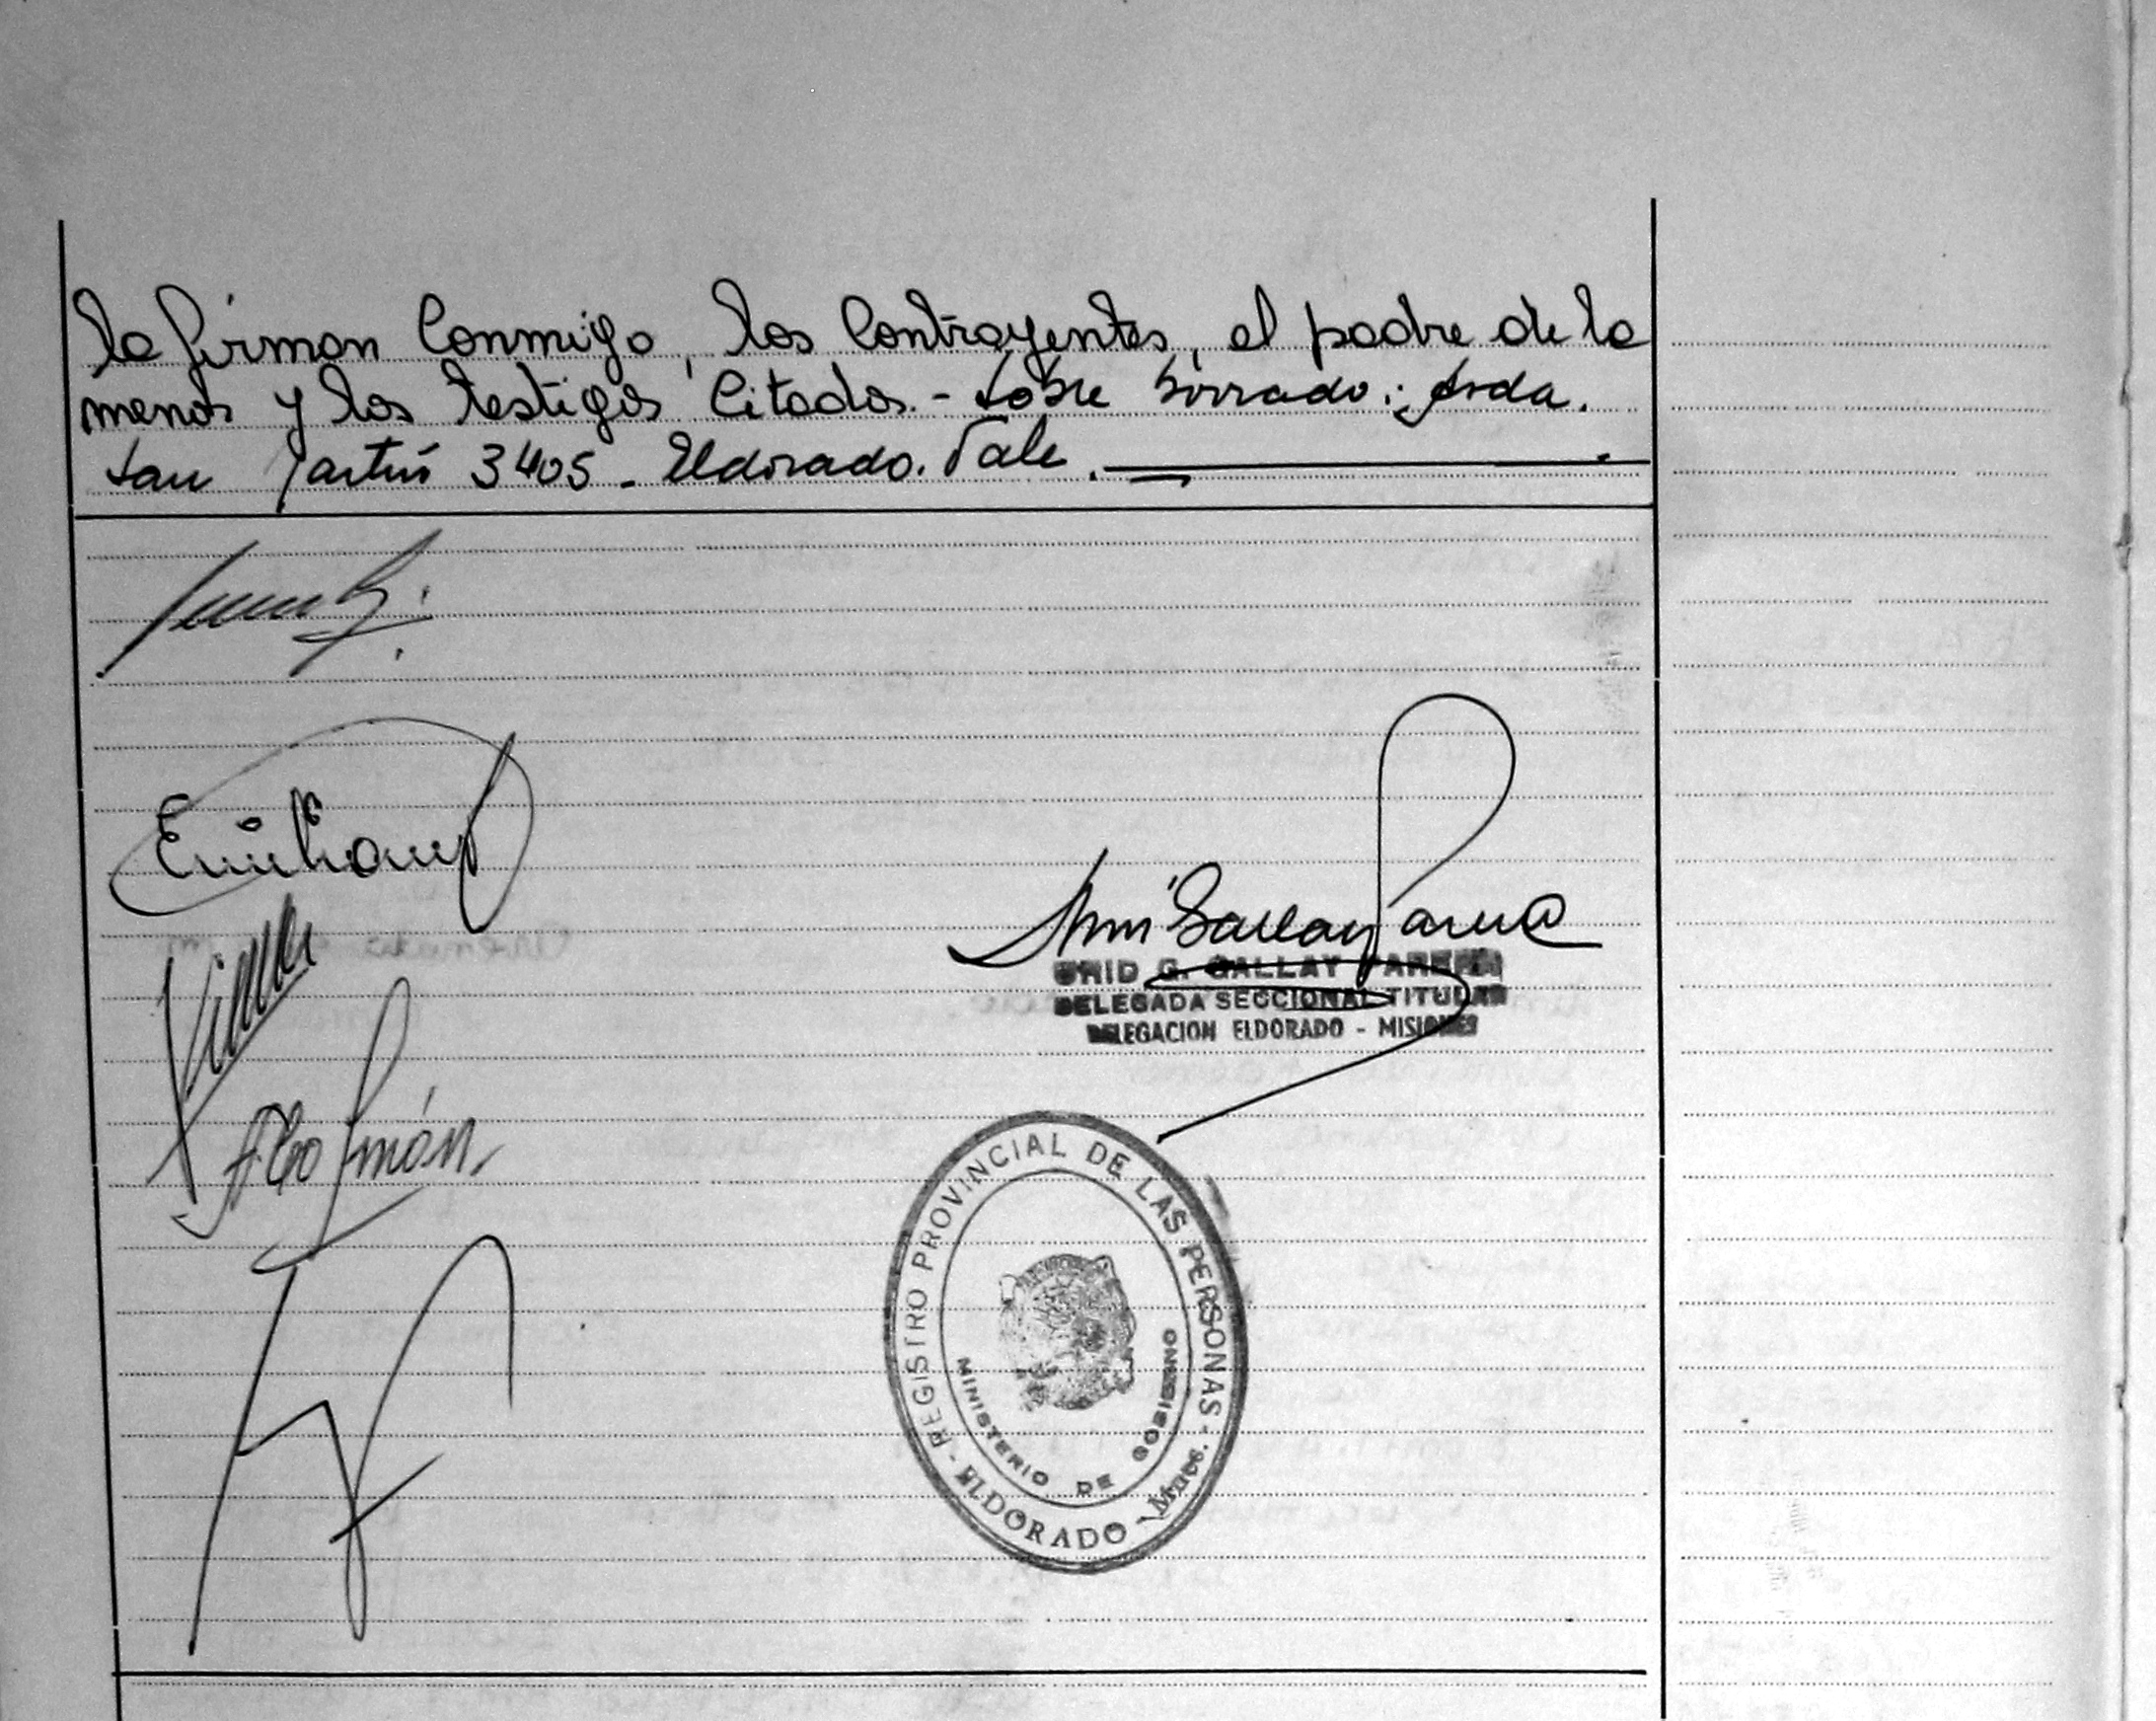 la firman conmigo, los contrayentes, el padre de la
menor y los testigos citados.- Sobre borrado: Avda.
San Martín 3405 - Eldorado. Vale.
G. GALLAY
DELEGADA SECCIONAL TITULAR
DELEGACION ELDORADO - MISIONES
REGISTRO PROVINCIAL DE LAS PERSONAS
MINISTERIO DE GOBIERNO
ELDORADO - Mnes.